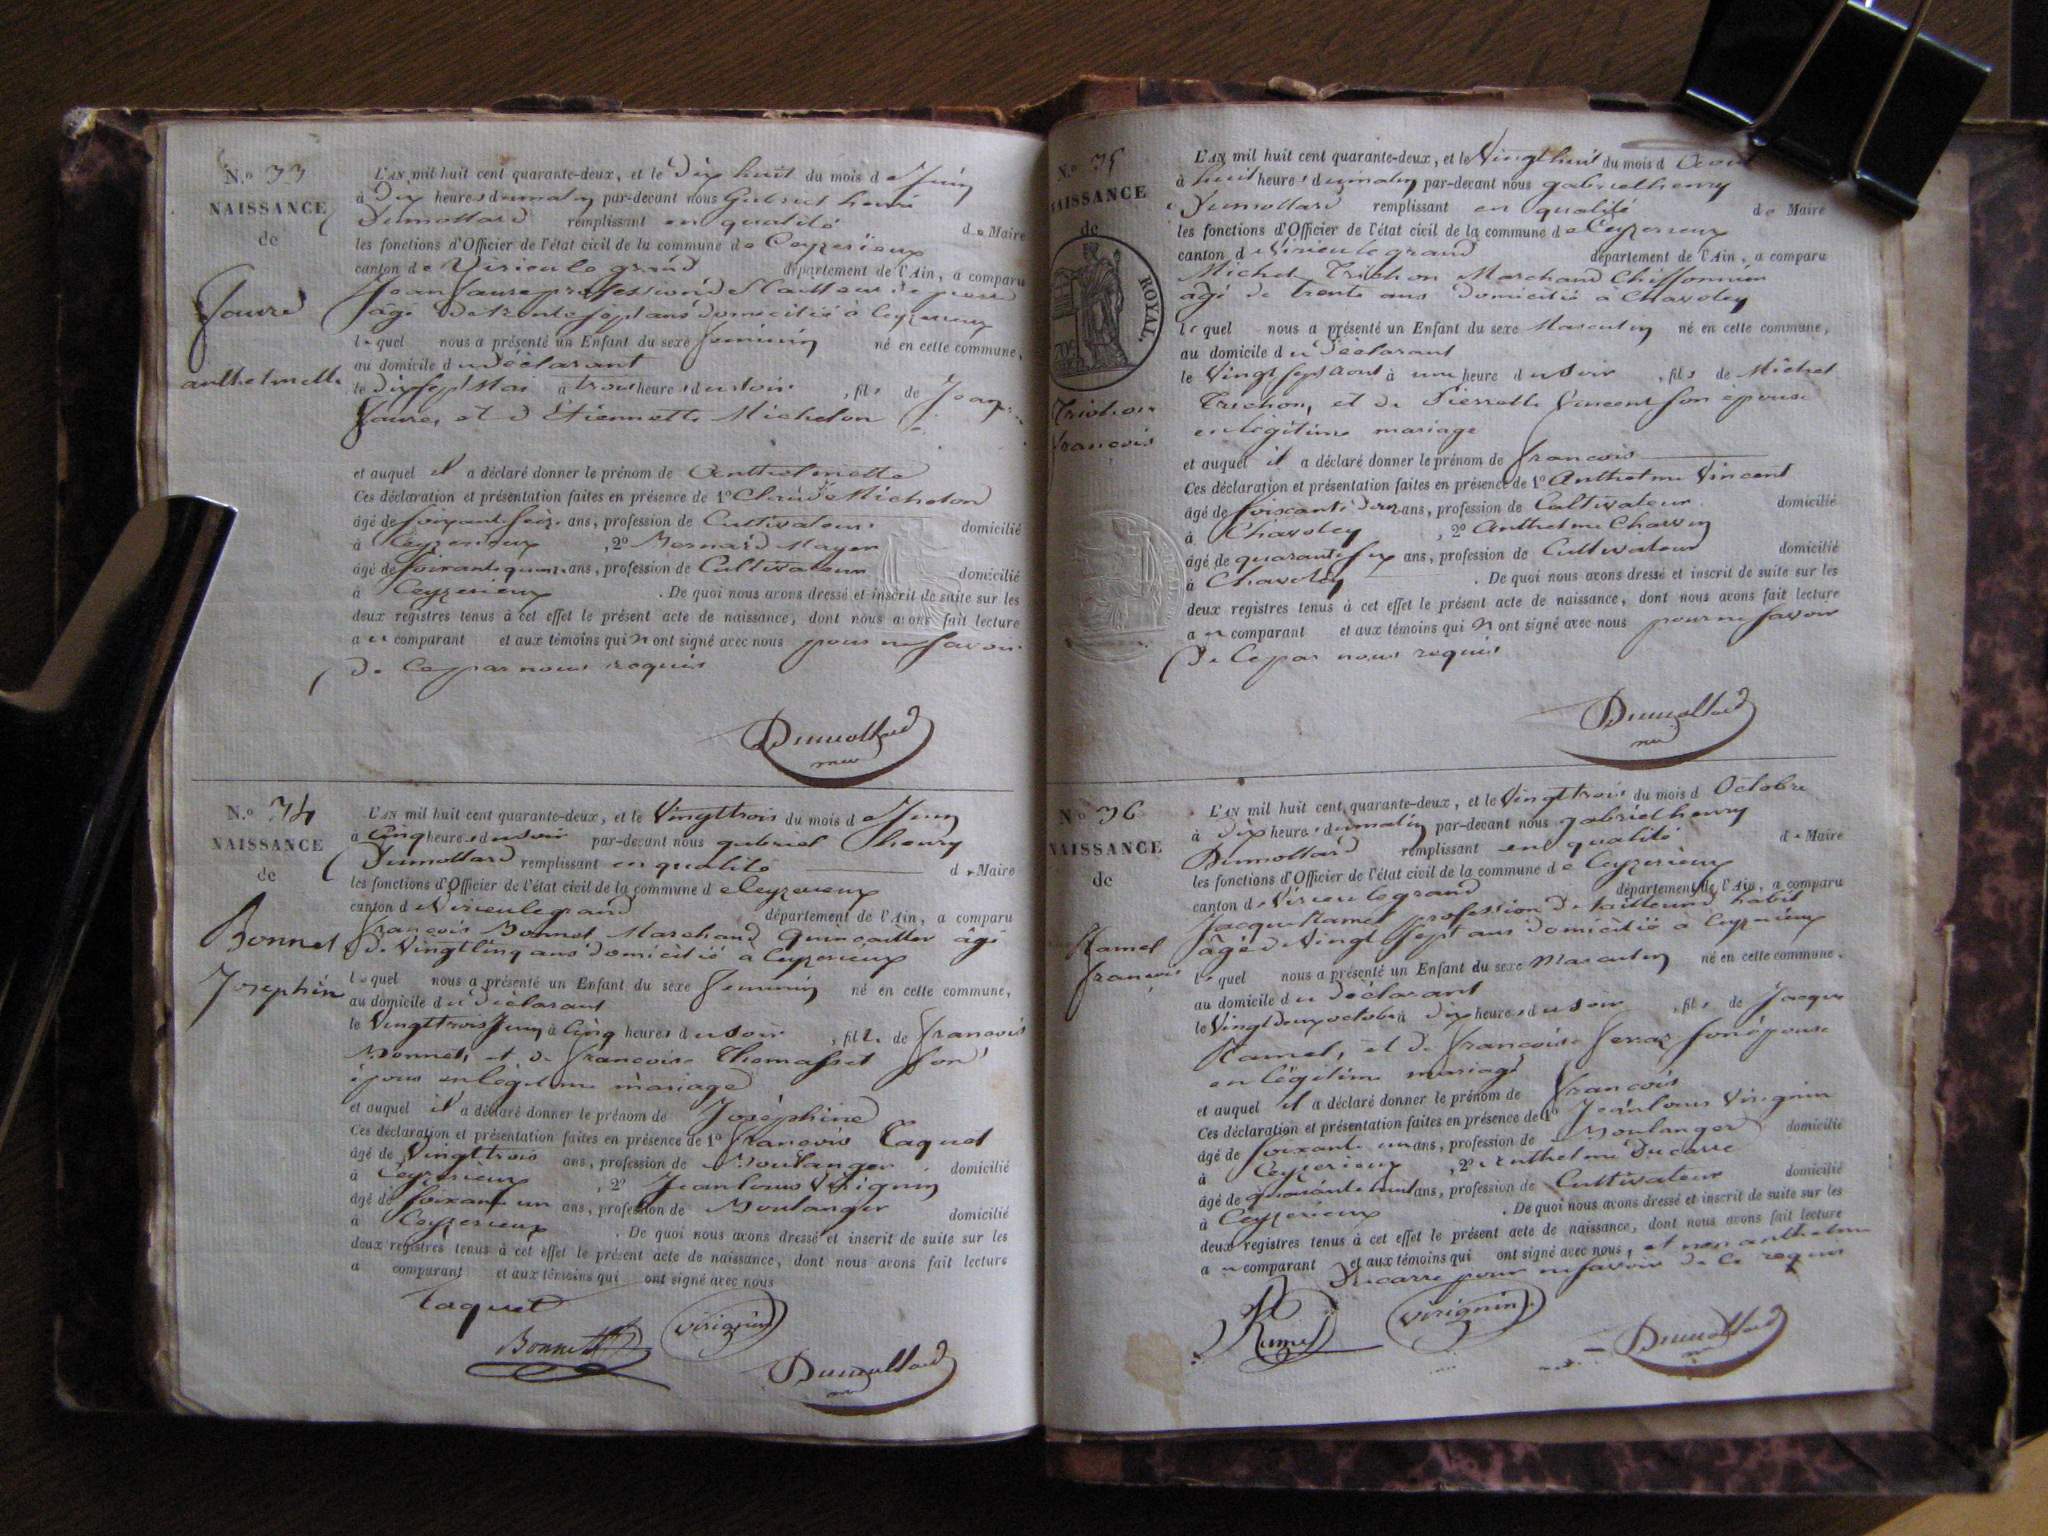 N.º 33
NAISSANCE
de
Faure
anthelmette
L'AN mil huit cent quarante-deux, et le Dix huit du mois de Juin
à Dix heures du matin par-devant nous Gabriel henri
Dumollard remplissant en qualité de Maire
les fonctions d'Officier de l'état civil de la commune de Ceyzerieux
canton de Virieu le grand département de l'Ain, a comparu
Jean Faure profession de tailleur de pierre
âgé de trente sept ans domicilié à Ceyzerieux
lequel nous a présenté un Enfant du sexe féminin né en cette commune,
au domicile du déclarant
le dix sept à trois heures du soir , fils de Jean
Faure, et d'Etiennette Michelon
et auquel il a déclaré donner le prénom de Anthelmette
Ces déclaration et présentation faites en présence de 1º Claude Michelon
âgé de soixante seize ans, profession de Cultivateur domicilié
à Ceyzerieux , 2º Bernard Mayer
âgé de soixante quinze ans, profession de Cultivateur domicilié
à Ceyzerieux . De quoi nous avons dressé et inscrit de suite sur les
deux registres tenus à cet effet le présent acte de naissance, dont nous avons fait lecture
au comparant et aux témoins qui n ont signé avec nous pour ne savoir
de Ce par nous requis
Dumollard
N.º 34
NAISSANCE
de
Bonnet
Josephine
L'AN mil huit cent quarante-deux, et le Vingt trois du mois de Juin
à Cinq heures du soir par-devant nous gabriel henry
Dumollard remplissant en qualité de Maire
les fonctions d'Officier de l'état civil de la commune de Ceyzerieux
canton de Virieu le grand département de l'Ain, a comparu
françois Bonnet Marchand Quincailler âgé
de Vingt Cinq ans domicilié à Ceyzerieux
lequel nous a présenté un Enfant du sexe féminin né en cette commune,
au domicile du déclarant
le Vingt trois Juin à Cinq heures du soir , fille de françois
Bonnet, et de françoise Thomasset son
épouse en légitime mariage
et auquel il a déclaré donner le prénom de Joséphine
Ces déclaration et présentation faites en présence de 1º françois Taquet
âgé de Vingt trois ans, profession de Boulanger domicilié
à Ceyzerieux , 2º Jean louis Virignin
âgé de soixante un ans, profession de Boulanger domicilié
à Ceyzerieux . De quoi nous avons dressé et inscrit de suite sur les
deux registres tenus à cet effet le présent acte de naissance, dont nous avons fait lecture
a comparant et aux témoins qui ont signé avec nous
Taquet
Bonnet
virignin
Dumollard
N.º 35
NAISSANCE
de
ROYAL.
Trichon
françois
L'AN mil huit cent quarante-deux, et le Vingt huit du mois d Aout
à huit heures du matin par-devant nous gabriel henry
Dumollard remplissant en qualité de Maire
les fonctions d'Officier de l'état civil de la commune de Ceyzerieux
canton de Virieu le grand département de l'Ain, a comparu
Michel Trichon Marchand Chiffonnier
âgé de trente ans domicilié à Chavoley
lequel nous a présenté un Enfant du sexe Masculin né en cette commune,
au domicile du déclarant
le Vingt sept Aout à une heure du soir , fils de Michel
Trichon, et de Pierrette Vincent son épouse
en légitime mariage
et auquel il a déclaré donner le prénom de françois
Ces déclaration et présentation faites en présence de 1º Anthelme Vincent
âgé de ans, profession de Cultivateur domicilié
à Chavoley , 2º Anthelme Charvin
âgé de quarante six ans, profession de Cultivateur domicilié
à Chavoley . De quoi nous avons dressé et inscrit de suite sur les
deux registres tenus à cet effet le présent acte de naissance, dont nous avons fait lecture
au comparant et aux témoins qui n ont signé avec nous pour ne savoir
de Ce par nous requis
Dumollard
N.º 36
NAISSANCE
de
Ramel
françois
L'AN mil huit cent quarante-deux, et le Vingt trois du mois d Octobre
à dix heures du matin par-devant nous gabriel henry
Dumollard remplissant en qualité de Maire
les fonctions d'Officier de l'état civil de la commune de Ceyzerieux
canton de Virieu le grand département de l'Ain, a comparu
Jacque Ramel profession de tailleur d habit
âgé de Vingt sept ans domicilié à Ceyzerieux
lequel nous a présenté un Enfant du sexe Masculin né en cette commune.
au domicile du déclarant
le Vingt deux octobre à dix heures du soir , fils de Jacque
Ramel, et de françoise ferraz son épouse
en légitime mariage
et auquel il a déclaré donner le prénom de françois
Ces déclaration et présentation faites en présence de 1º Jean louis Virignin
âgé de soixante un ans, profession de Boulanger domicilié
à Ceyzerieux , 2º Anthelme Ducarre
âgé de ans, profession de Cultivateur domicilié
à Ceyzerieux . De quoi nous avons dressé et inscrit de suite sur les
deux registres tenus à cet effet le présent acte de naissance, dont nous avons fait lecture
au comparant et aux témoins qui ont signé avec nous, et non anthelme
Ducarre pour ne savoir de ce requis
Ramel
virignin
Dumollard